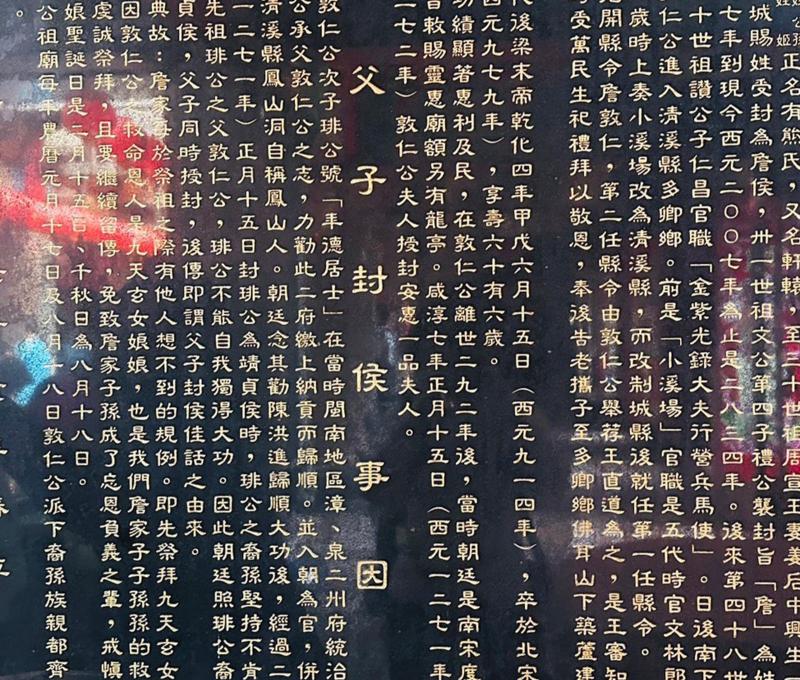 姓
姓公姬
正名有熊氏，又名軒轅，至三十世祖周宣王妻姜后中興生
城賜姓受封為詹侯，卅一世祖文公第四子禮公襲封旨「詹」為姓
七年到現今西元二００七年為止是二八三四年。後來第四十八世
十世祖讚公子仁昌官職「金紫光錄大夫行營兵馬使」。日後南下
仁公進入清溪縣多卿鄉。前是「小溪場」官職是五代時官文林郎
歲時上奏小溪場改為清溪縣，而改制城縣後就任第一任縣令。
元開縣令詹敦仁，第二任縣令由敦仁公舉荐王直道為之，是王審知
受萬民生祀禮拜以敬恩，奉後告老攜子至多卿鄉佛耳山下築蘆建
代後梁末帝乾化四年甲戌六月十五日（西元九一四年），卒於北宋
西元九七九年），享壽六十有六歲。
功績顯著惠利及民，在敦仁公離世二九二年後，當時朝廷是南宋度
旨敕賜靈惠廟額另有龍亭。咸淳七年正月十五日（西元一二七一年
一二七二年）敦仁公夫人授封安惠一品夫人。
父子封侯事因
敦仁公次子琲公號「年德居士」在當時閩南地區漳、泉二州府統治
公承父敦仁公之志，力勸此二府繳上納貢而歸順。並入朝為官，併
清溪縣鳳山洞自稱鳳山人。朝廷念其勸陳洪進歸順大功後，經過二
一二七一年）正月十五日封琲公為靖貞侯時，琲公之裔孫堅持不肯
先祖琲公之父敦仁公，琲公不能自我獨得大功。因此朝廷照琲公裔
貞侯，父子同時授封，後傳即謂父子封侯佳話之由來。
典故：詹家每於祭祖之際有他人想不到的規例。即先祭拜九天玄女
因敦仁公之救命恩人是九天玄女娘娘，也是我們詹家子子孫孫的救
虔誠祭拜，且要繼續留傳，免致詹家子孫成了忘恩負義之輩，戒慎
娘聖誕日是二月十五日、千秋日為八月十八日。
公祖廟每年農曆元月十七日及八月十八日敦仁公派下裔孫族親都齊
。